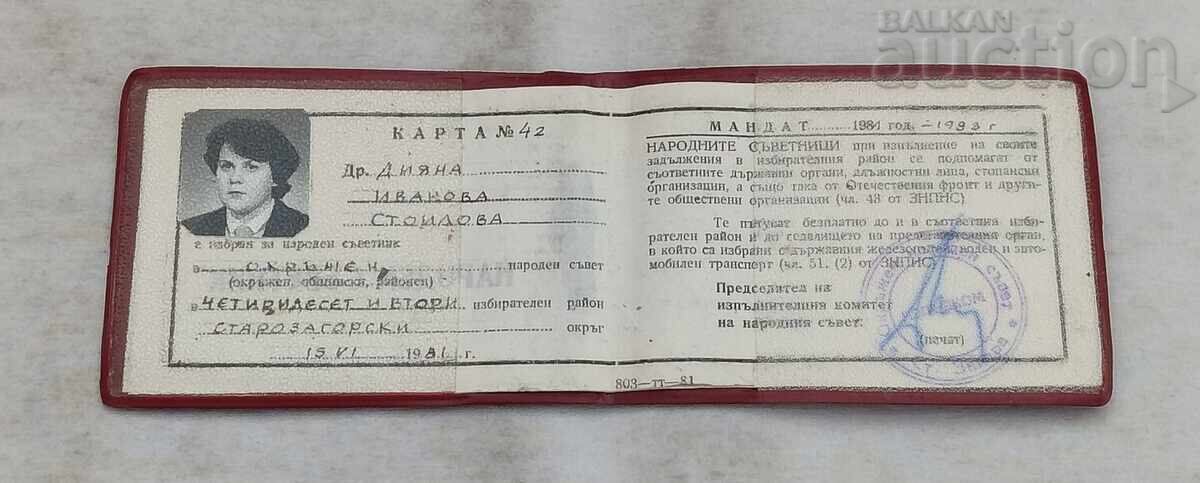 BALKAN
auction
КАРТА № 42
Др. ДИЯНА
ИВАНОВА
СТОИЛОВА
е избран за народен съветник
в ОКРЪЖЕН народен съвет
(окръжен, общински, районен)
в ЧЕТИРИДЕСЕТ И ВТОРИ избирателен район
СТАРОЗАГОРСКИ окръг
15 VI 1981 г.
МАНДАТ 1981 год. - 1983 г
НАРОДНИТЕ СЪВЕТНИЦИ при изпълнение на своите
задължения в избирателния район се подпомагат от
съответните държавни органи, длъжностни лица, стопански
организации, а също така от Отечествения фронт и други-
те обществени организации (чл. 48 от ЗНПНС)
Те пътуват безплатно до и в съответния изби-
рателен район и до седалището на представителния орган,
в който са избрани с държавния железопътен, воден и авто-
мобилен транспорт (чл. 51. (2) от ЗНПНС)
Председател на
изпълнителния комитет
на народния съвет:
(печат)
803—тт—81